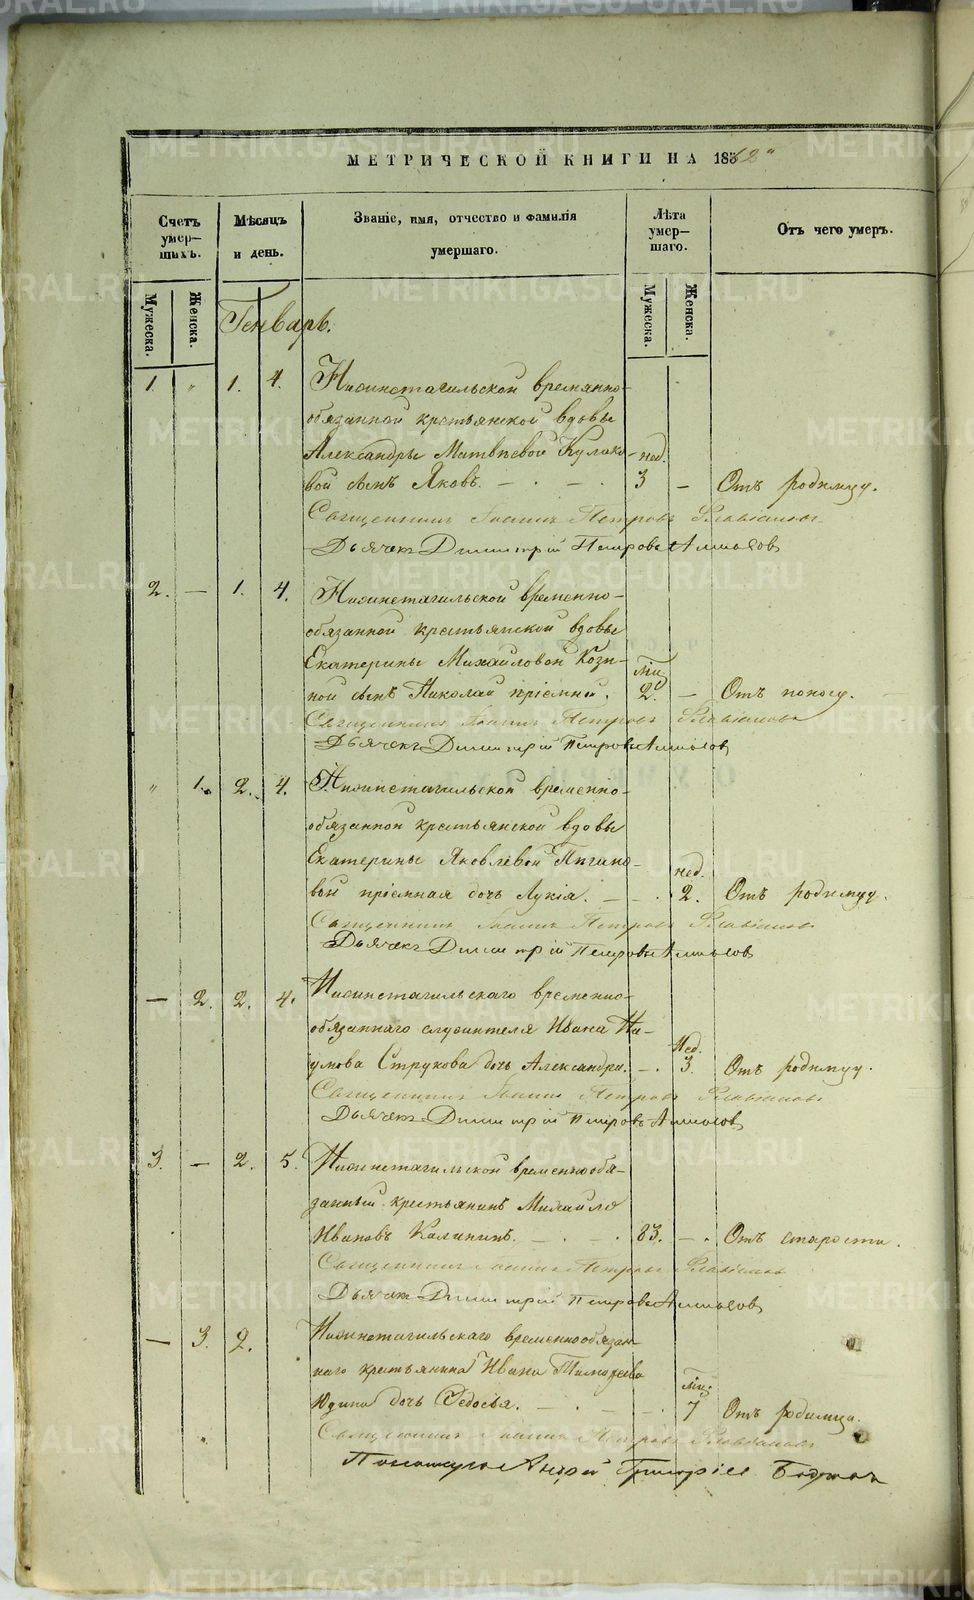 МЕТРИЧЕСКОЙ КНИГИ НА 1862
Счетъ умер-шихъ.
Мѣсяцъ и день.
Званіе, имя, отчество и фамилія умершаго.
Лѣта умер-шаго.
Отъ чего умеръ.
Мужеска.
Женска.
Мужеска.
Женска.
Генварь.
1. " 1. 4. Нижнетагильской временно-
обязанной крестьянской вдовы
Александры Матвѣевой Кулако- нед.
вой сынъ Яковъ. 3 – Отъ родимцу.
Священникъ Іоаннъ Петровъ
Дьячекъ Димитрій Петровъ
2. – 1. 4. Нижнетагильской временно-
обязанной крестьянской вдовы
Екатерины Михайловой Кози-
ной сынъ Николай пріемный. 2. – Отъ поносу.
Священникъ Іоаннъ Петровъ
Дьячекъ Димитрій Петровъ
" 1. 2. 4. Нижнетагильской временно-
обязанной крестьянской вдовы
Екатерины Яковлевой нед.
вой пріемная дочь Лукія. 2. Отъ родимцу.
Священникъ Іоаннъ Петровъ
Дьячекъ Димитрій Петровъ
– 2. 2. 4. Нижнетагильскаго временно-
обязаннаго служителя Ивана На-
умова Струкова дочь Александра. Нед. 3. Отъ родимцу.
Священникъ Іоаннъ Петровъ
Дьячекъ Димитрій Петровъ
3. – 2. 5. Нижнетагильской временнообя-
занный крестьянинъ Михайло
Ивановъ Калининъ. 83. – Отъ старости.
Священникъ Іоаннъ Петровъ
Дьячекъ Димитрій Петровъ
– 3. 2. Нижнетагильскаго временнообязан-
наго крестьянина Ивана Тимофеева
Юдина дочь Федосья. 7 Отъ родимца.
Священникъ Іоаннъ Петровъ
Андрей
METRIKI.GASO-URAL.RU